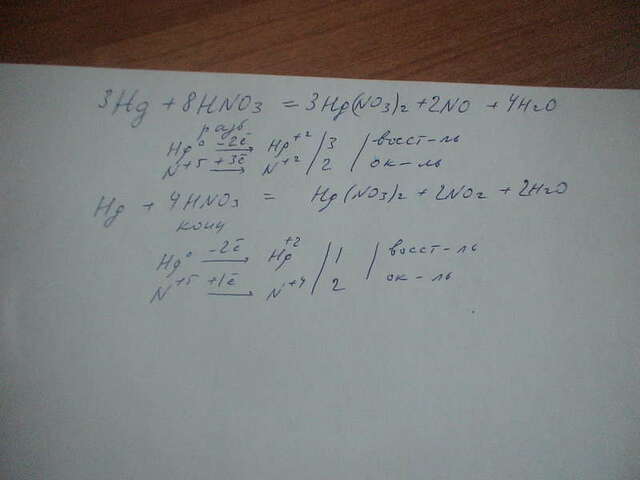 3Hg + 8HNO3 = 3Hg(NO3)2 + 2NO + 4H2O
разб
Hg⁰ -2ē → Hg⁺² | 3 | восст-ль
N⁺⁵ +3ē → N⁺² | 2 | ок-ль
Hg + 4HNO3 = Hg(NO3)2 + 2NO2 + 2H2O
конц
Hg⁰ -2ē → Hg⁺² | 1 | восст-ль
N⁺⁵ +1ē → N⁺⁴ | 2 | ок-ль